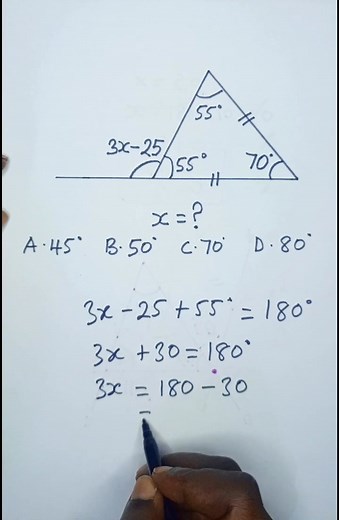 55°
3x-25 55° 70°
x = ?
A·45° B·50° C·70° D·80°
3x - 25 + 55° = 180°
3x + 30 = 180°
3x = 180 - 30
=